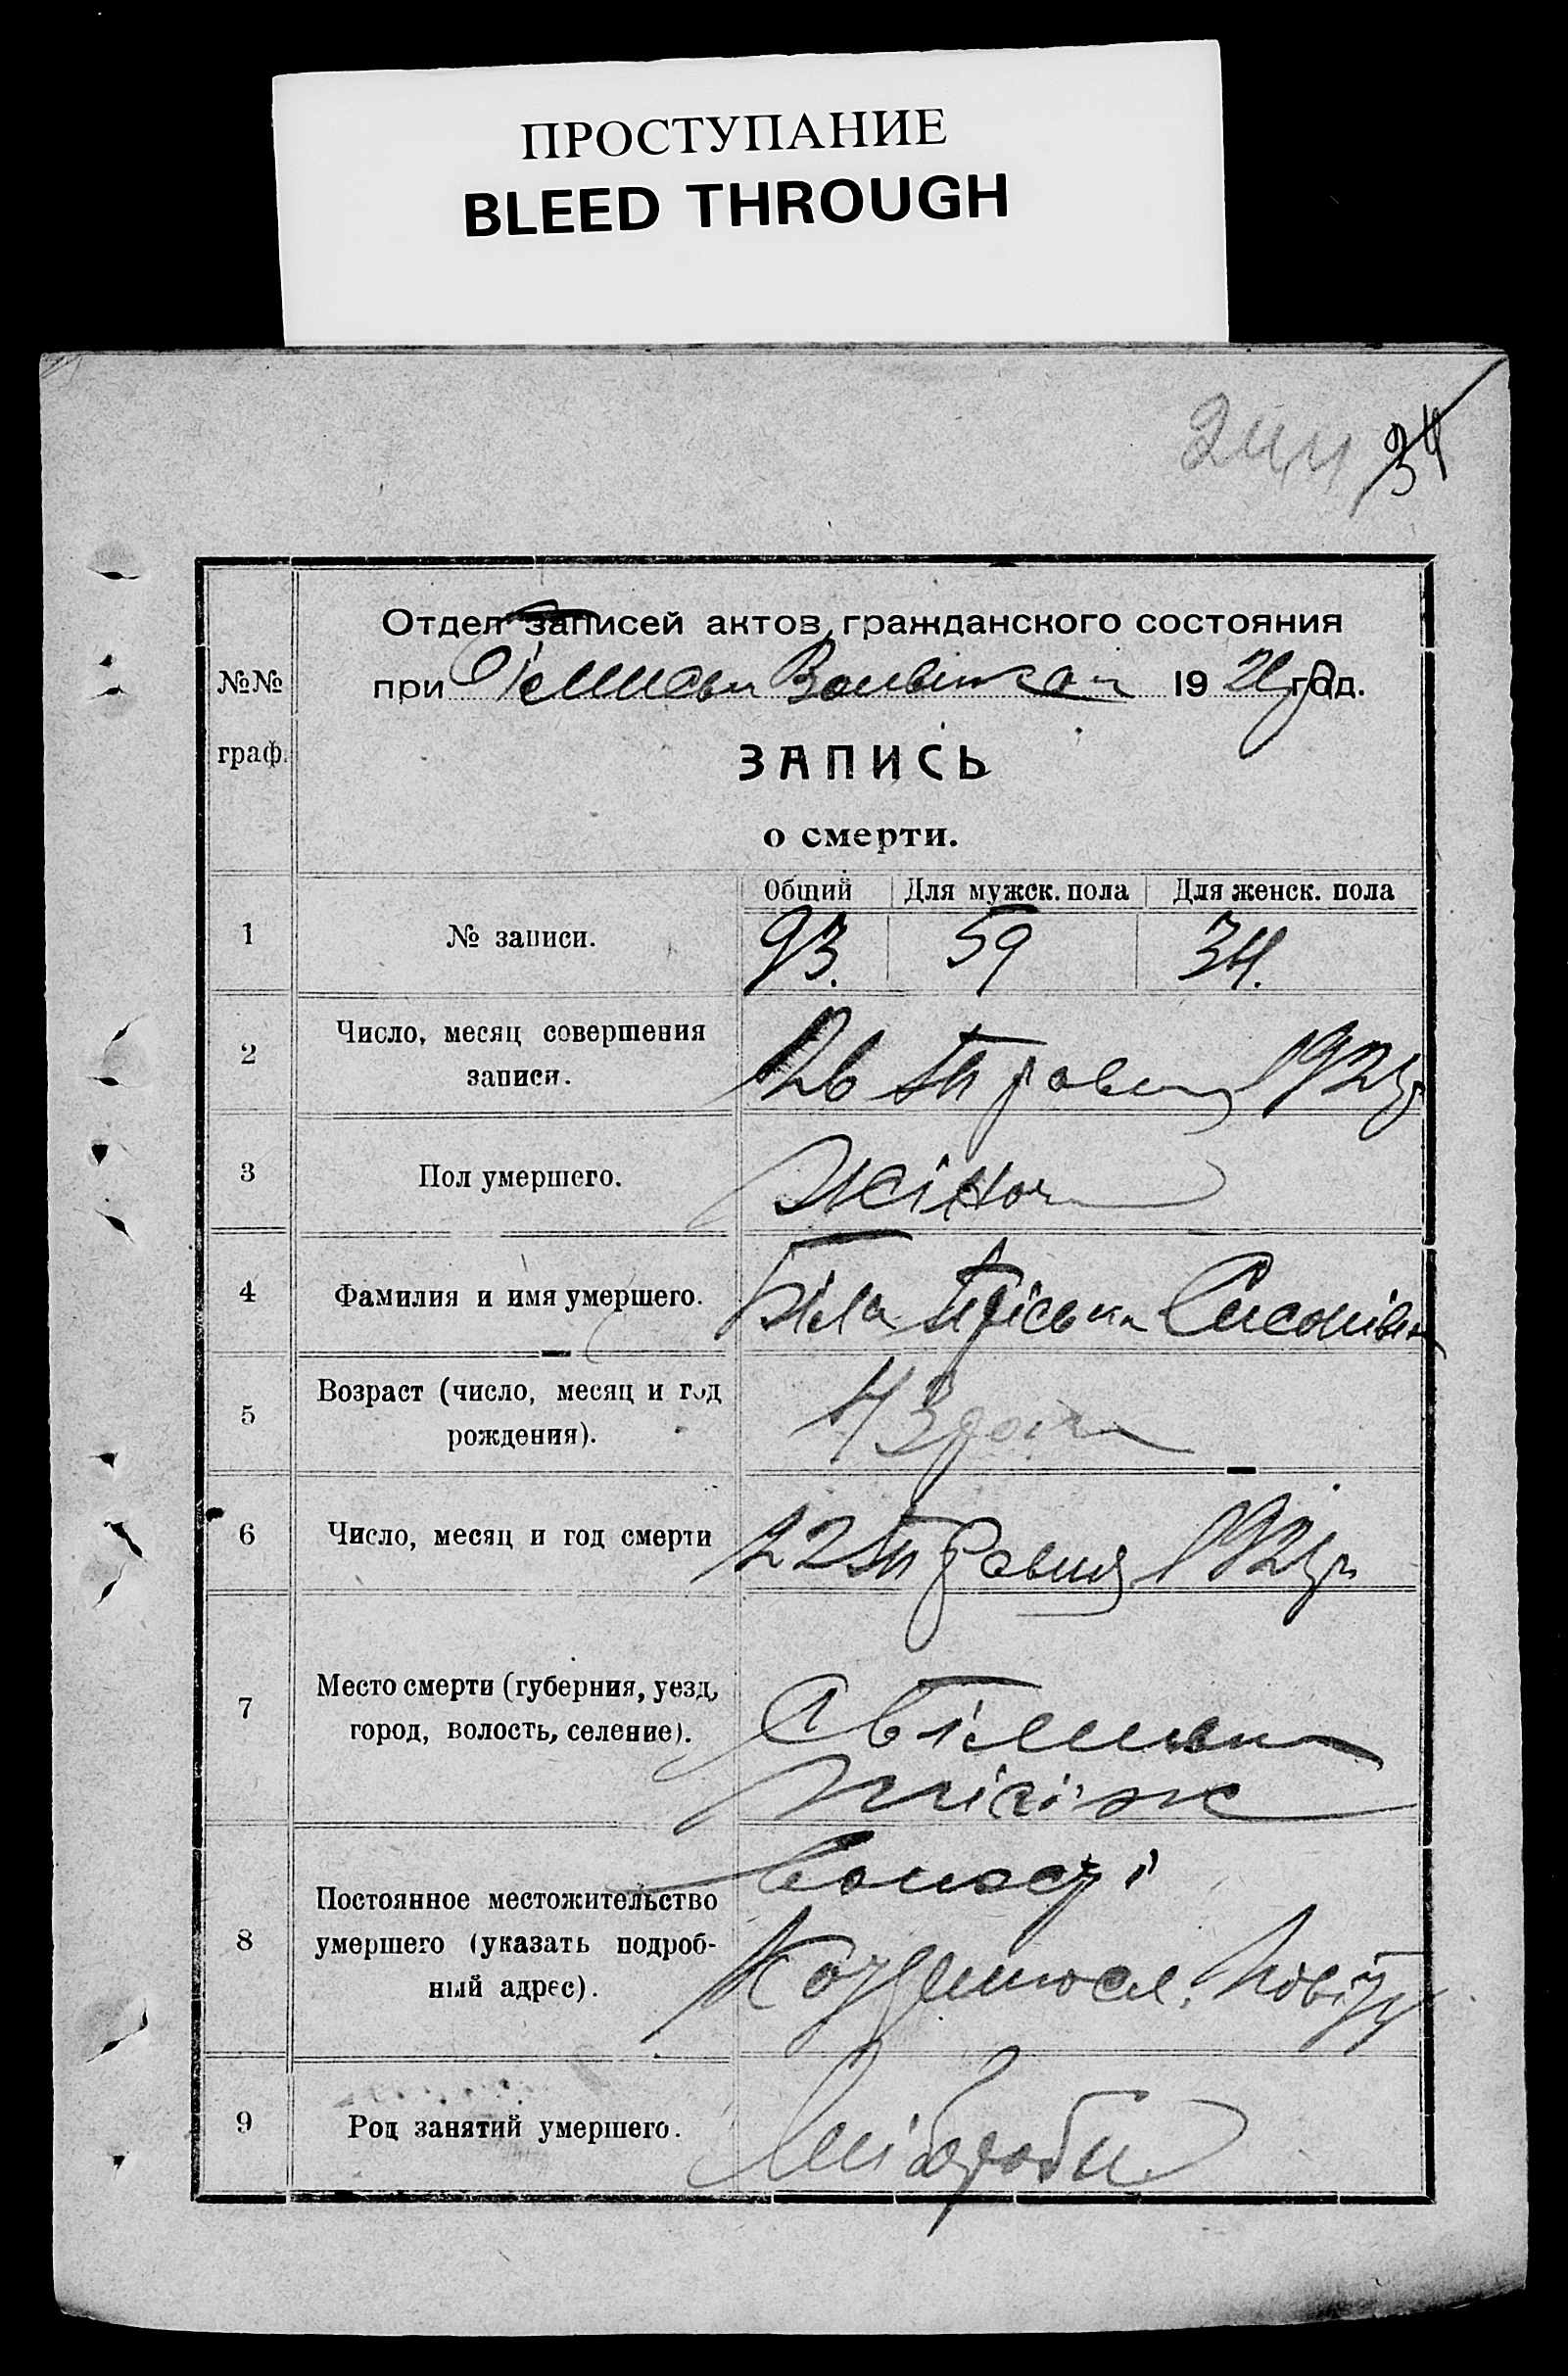 ПРОСТУПАНИЕ
BLEED THROUGH
244 34
Отдел записей актов гражданского состояния
при 1921 год.
№№
граф.
ЗАПИСЬ
о смерти.
Общий Для мужск. пола Для женск. пола
1 № записи. 93. 59 34.
2 Число, месяц совершения
записи.
26 Травня 1921р
3 Пол умершего. Жіноч
4 Фамилия и имя умершего. Біла Пріська
5 Возраст (число, месяц и год
рождения).
43 роки
6 Число, месяц и год смерти 22 Травня 1921р
7 Место смерти (губерния, уезд,
город, волость, селение).
8 Постоянное местожительство
умершего (указать подроб-
ный адрес).
волости
повіту
9 Род занятий умершего. Хлібороби